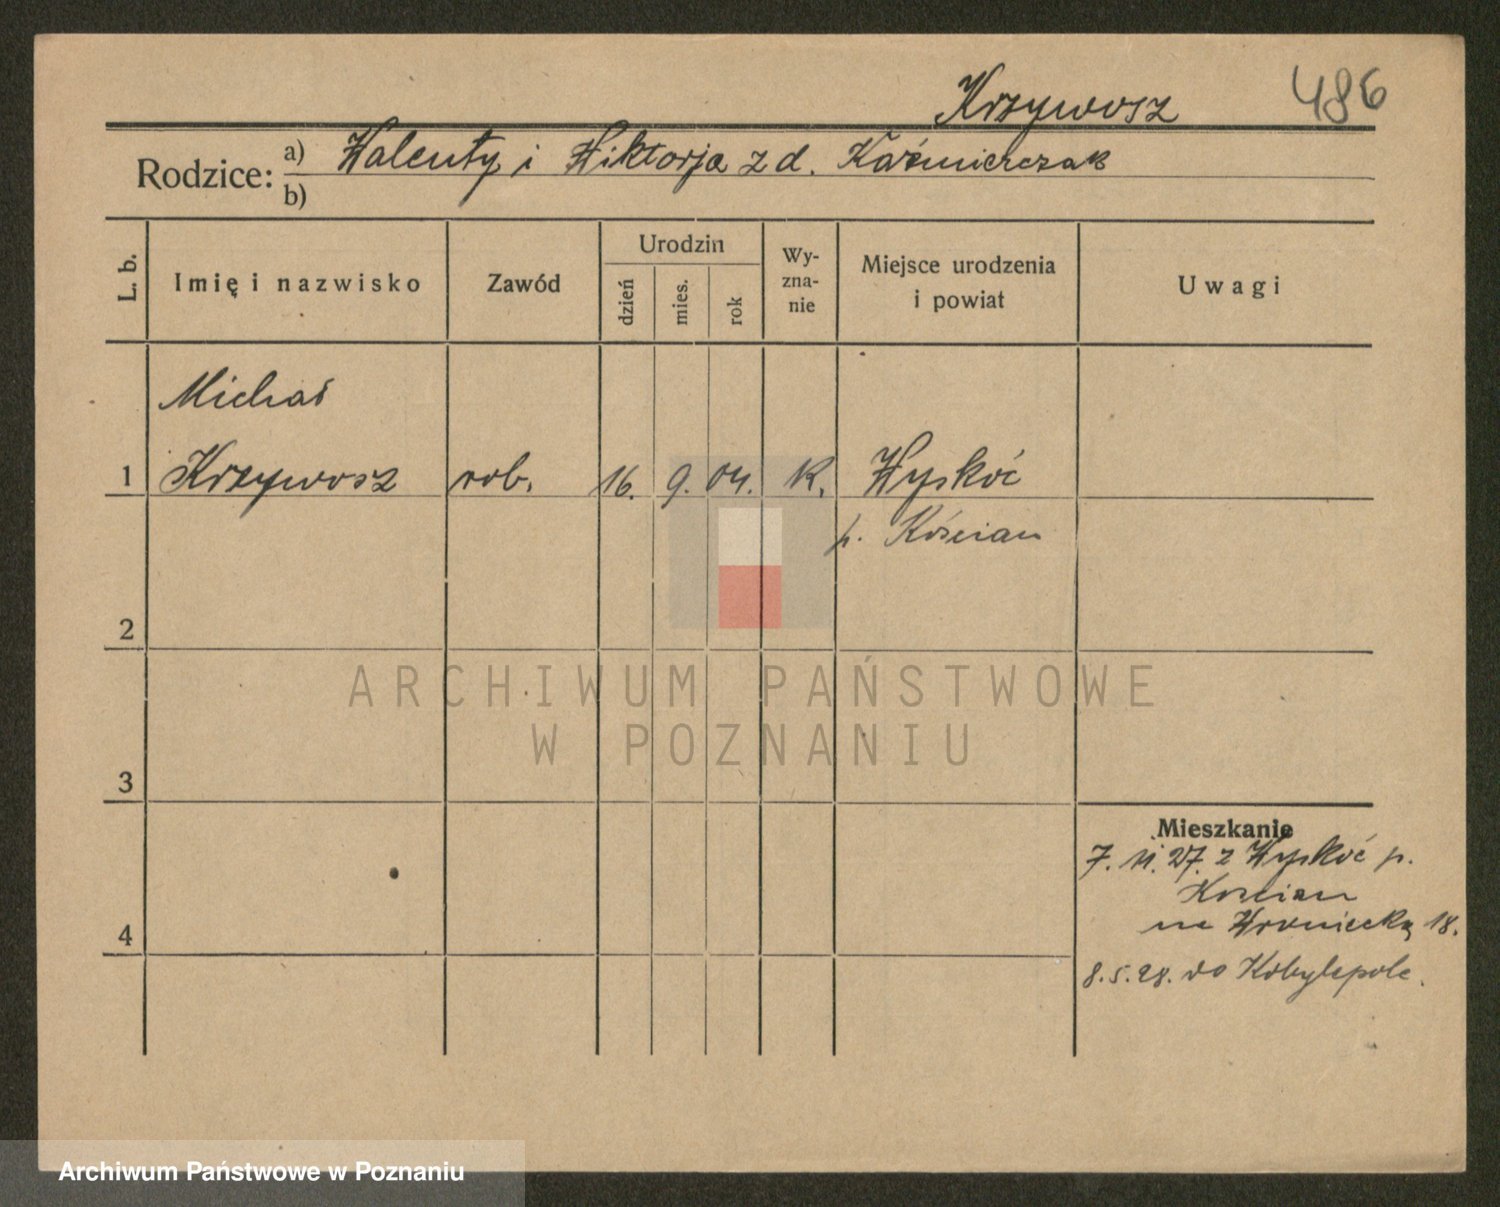 Krzywosz 486
Rodzice: a) Walenty i Wiktorja z d. Kaźmierczak
b)
L. b.
Imię i nazwisko
Zawód
Urodzin
dzień
mies.
rok
Wy-
zna-
nie
Miejsce urodzenia
i powiat
Uwagi
Michał
1 Krzywosz rob. 16. 9. 04. K. Wyskoć
p. Kościan
2
ARCHIWUM PAŃSTWOWE
W POZNANIU
3
Mieszkanie
7. 11. 27. z Wyskoć p.
Kościan
na Wroniecką 18.
4
8.5.28. do Kobylepole.
Archiwum Państwowe w Poznaniu